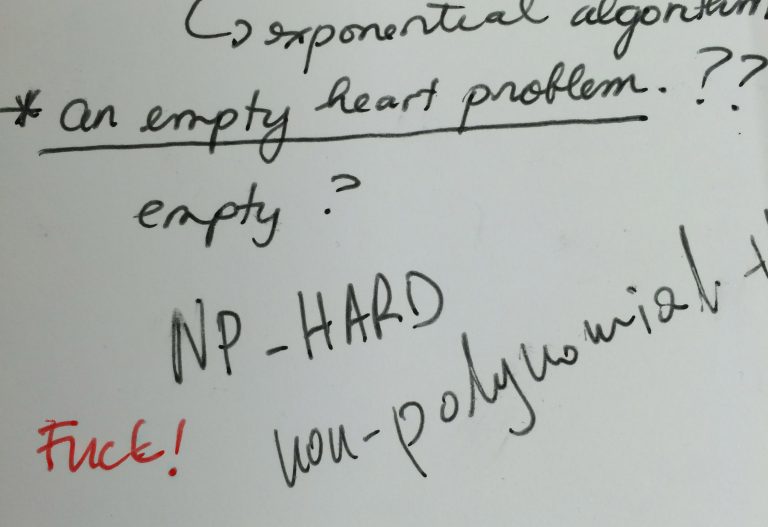 ↳ exponential algorithm
* an empty heart problem. ??
empty ?
NP-HARD
non-polynomial
Fuck!